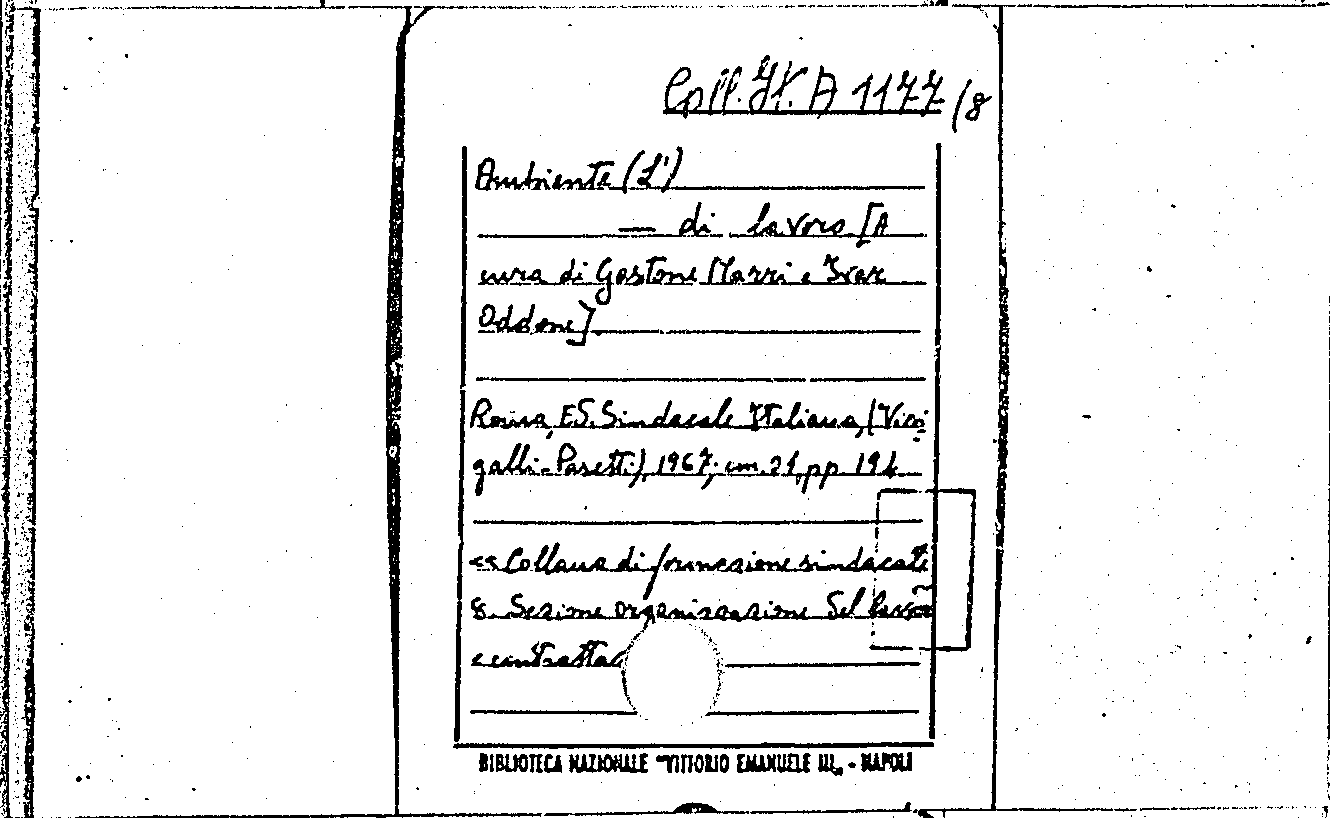 Coll. It. A 1177 (8
Ambiente (L')
— di lavoro [A
cura di Gastone Marri e Ivar
Oddone].
Roma, Ed. Sindacale Italiana, (Viro-
galli-Pasetti), 1967, cm. 21, pp. 194
<< Collana di formazione sindacale
8. Sezione organizzazione del lavoro
e contrattaz
BIBLIOTECA NAZIONALE "VITTORIO EMANUELE III„ - NAPOLI